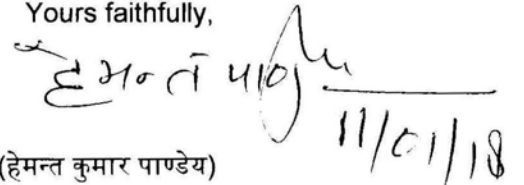 Yours faithfully,
हेमन्त पाण्डे
11/01/18
(हेमन्त कुमार पाण्डेय)